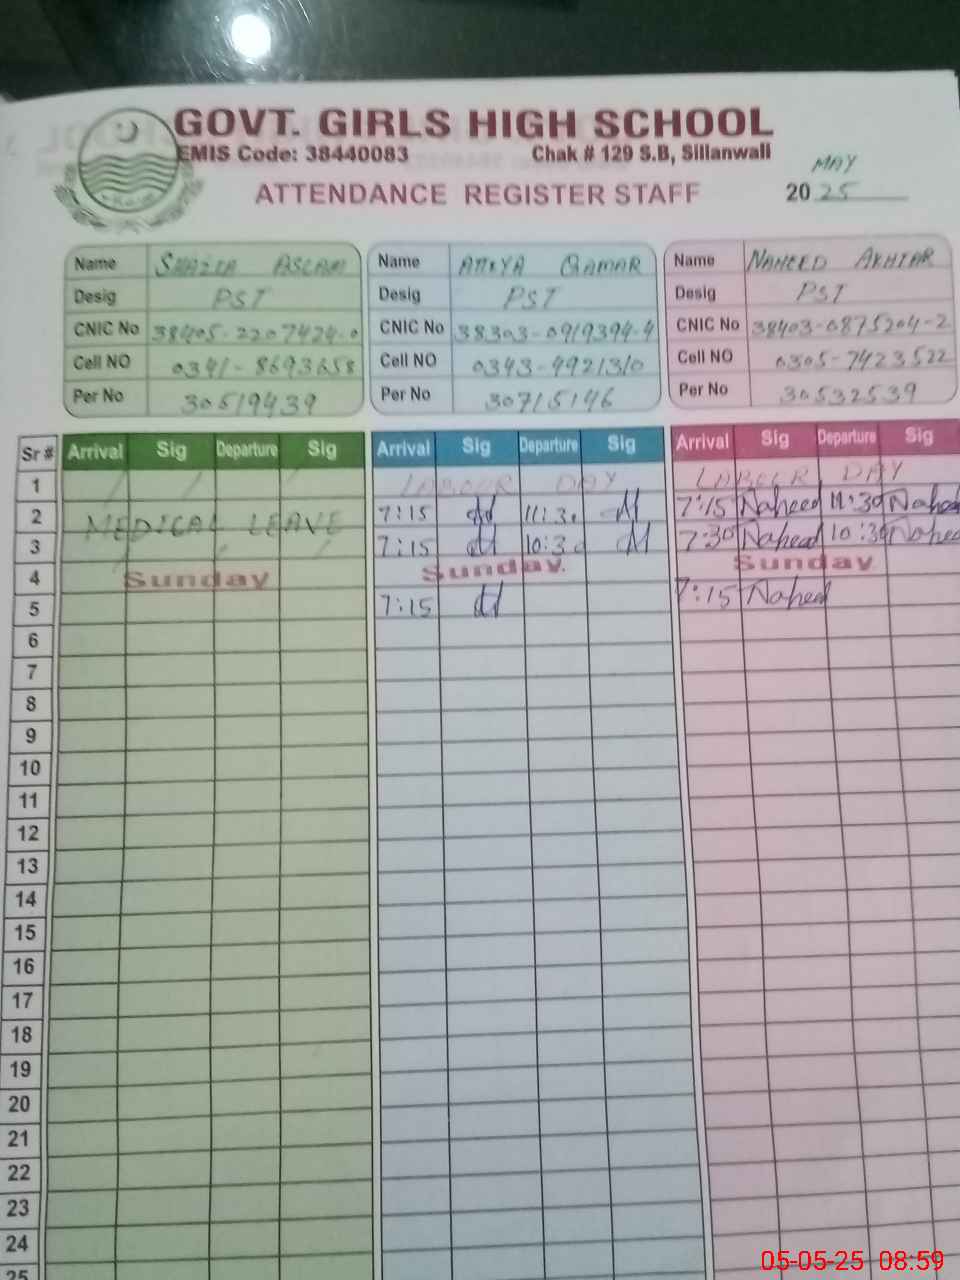 GOVT. GIRLS HIGH SCHOOL
EMIS Code: 38440083 Chak # 129 S.B, Sillanwali
MAY
ATTENDANCE REGISTER STAFF 2025
Name SHAZIA ASLAM Name ATTIYA QAMAR Name NAHEED AKHTAR
Desig PST Desig PST Desig PST
CNIC No 38405-2207424-0 CNIC No 38303-0919394-4 CNIC No 38403-0875204-2
Cell NO 0341-8693658 Cell NO 0343-4921310 Cell NO 0305-7423522
Per No 30519439 Per No 30715146 Per No 30532539
Sr # Arrival Sig Departure Sig Arrival Sig Departure Sig Arrival Sig Departure Sig
1 LABOUR DAY LABOUR DAY
2 MEDICAL LEAVE 7:15 11:30 7:15 Naheed 11:30 Naheed
3 7:15 10:30 7:30 Naheed 10:30 Naheed
4 Sunday Sunday. Sunday
5 7:15 7:15 Naheed
6
7
8
9
10
11
12
13
14
15
16
17
18
19
20
21
22
23
24
25
05-05-25 08:59